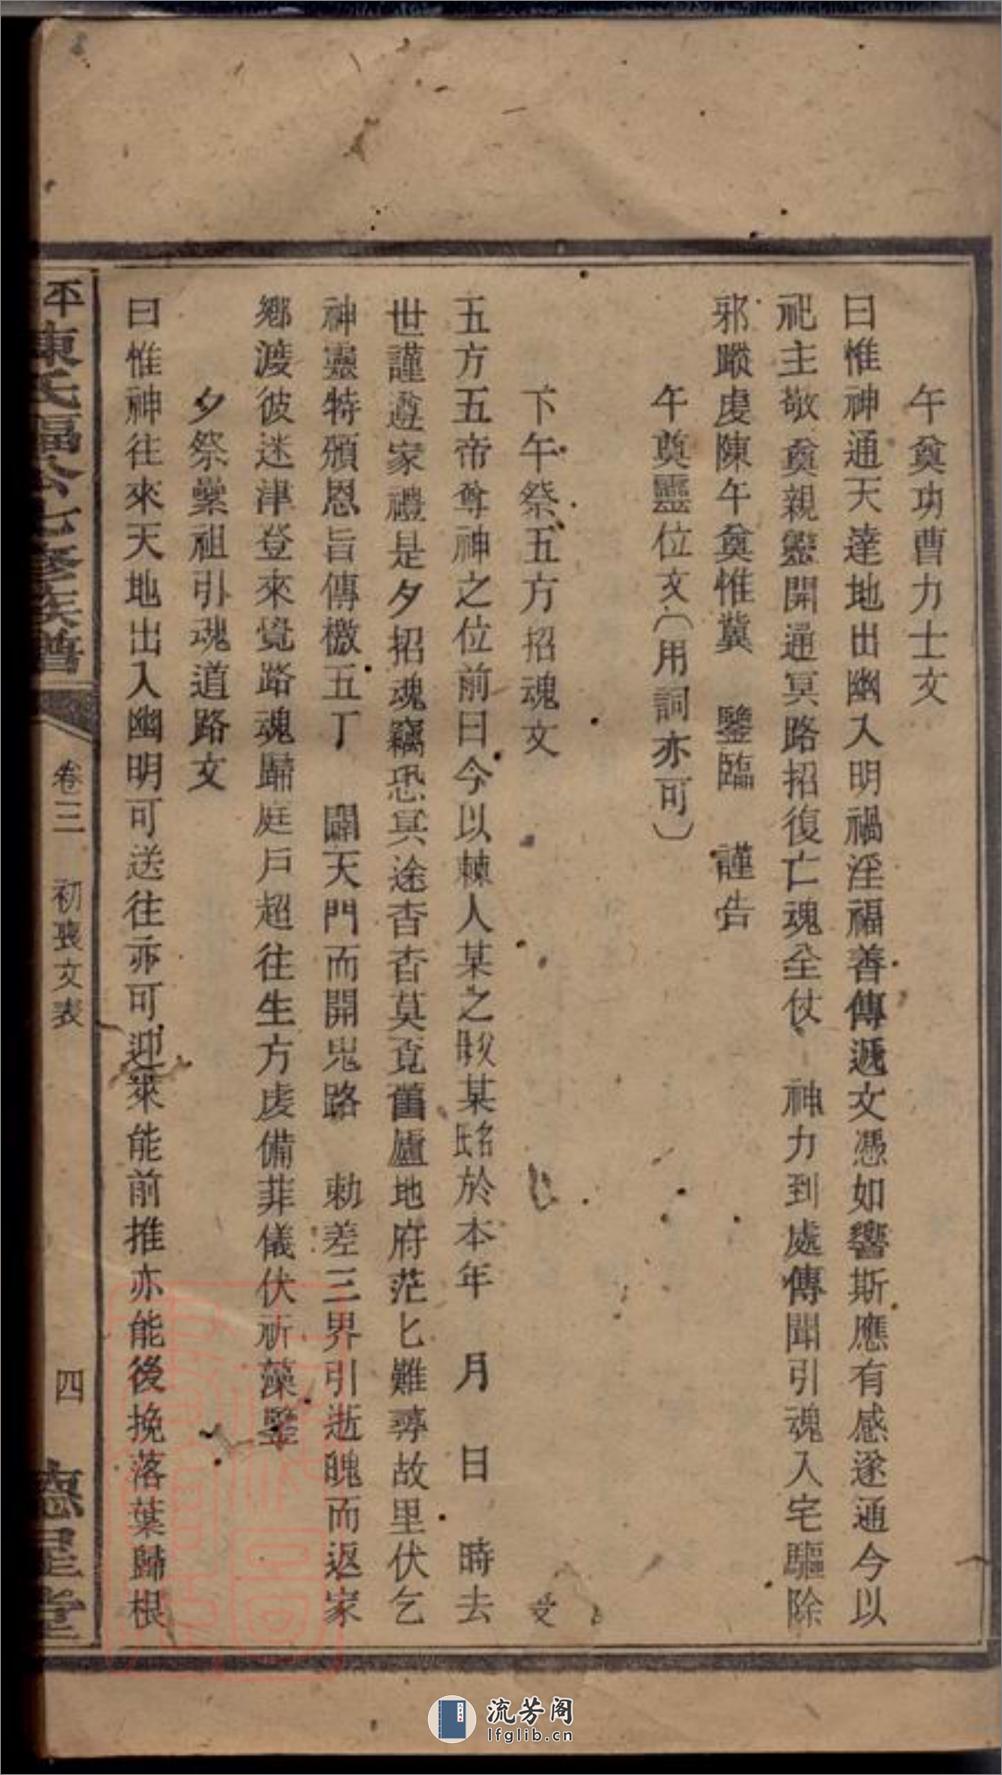 午奠功曹力士文
曰惟神通天達地出幽入明禍淫福善傳遞文憑如響斯應有感遂通今以
祀主敬奠親靈開通冥路招復亡魂全仗　神力到處傳聞引魂入宅驅除
邪蹤虔陳午奠惟冀　鑒臨　謹告
午奠靈位文（用詞亦可）
下午祭五方招魂文
五方五帝尊神之位前曰今以棘人某之父某名氏於本年　月　日　時去
世謹遵家禮是夕招魂竊恐冥途杳杳莫覓舊廬地府茫匕難尋故里伏乞
神靈特頒恩旨傳檄五丁　闢天門而開鬼路　勅差三界引逝魄而返家
鄉渡彼迷津登來覺路魂歸庭戶超往生方虔備菲儀伏祈藻鑒
夕祭纍祖引魂道路文
曰惟神往來天地出入幽明可送往亦可迎來能前推亦能後挽落葉歸根
平 陳氏福公七修族譜
卷三　初喪文表
四
德星堂
流芳阁
lfglib.cn